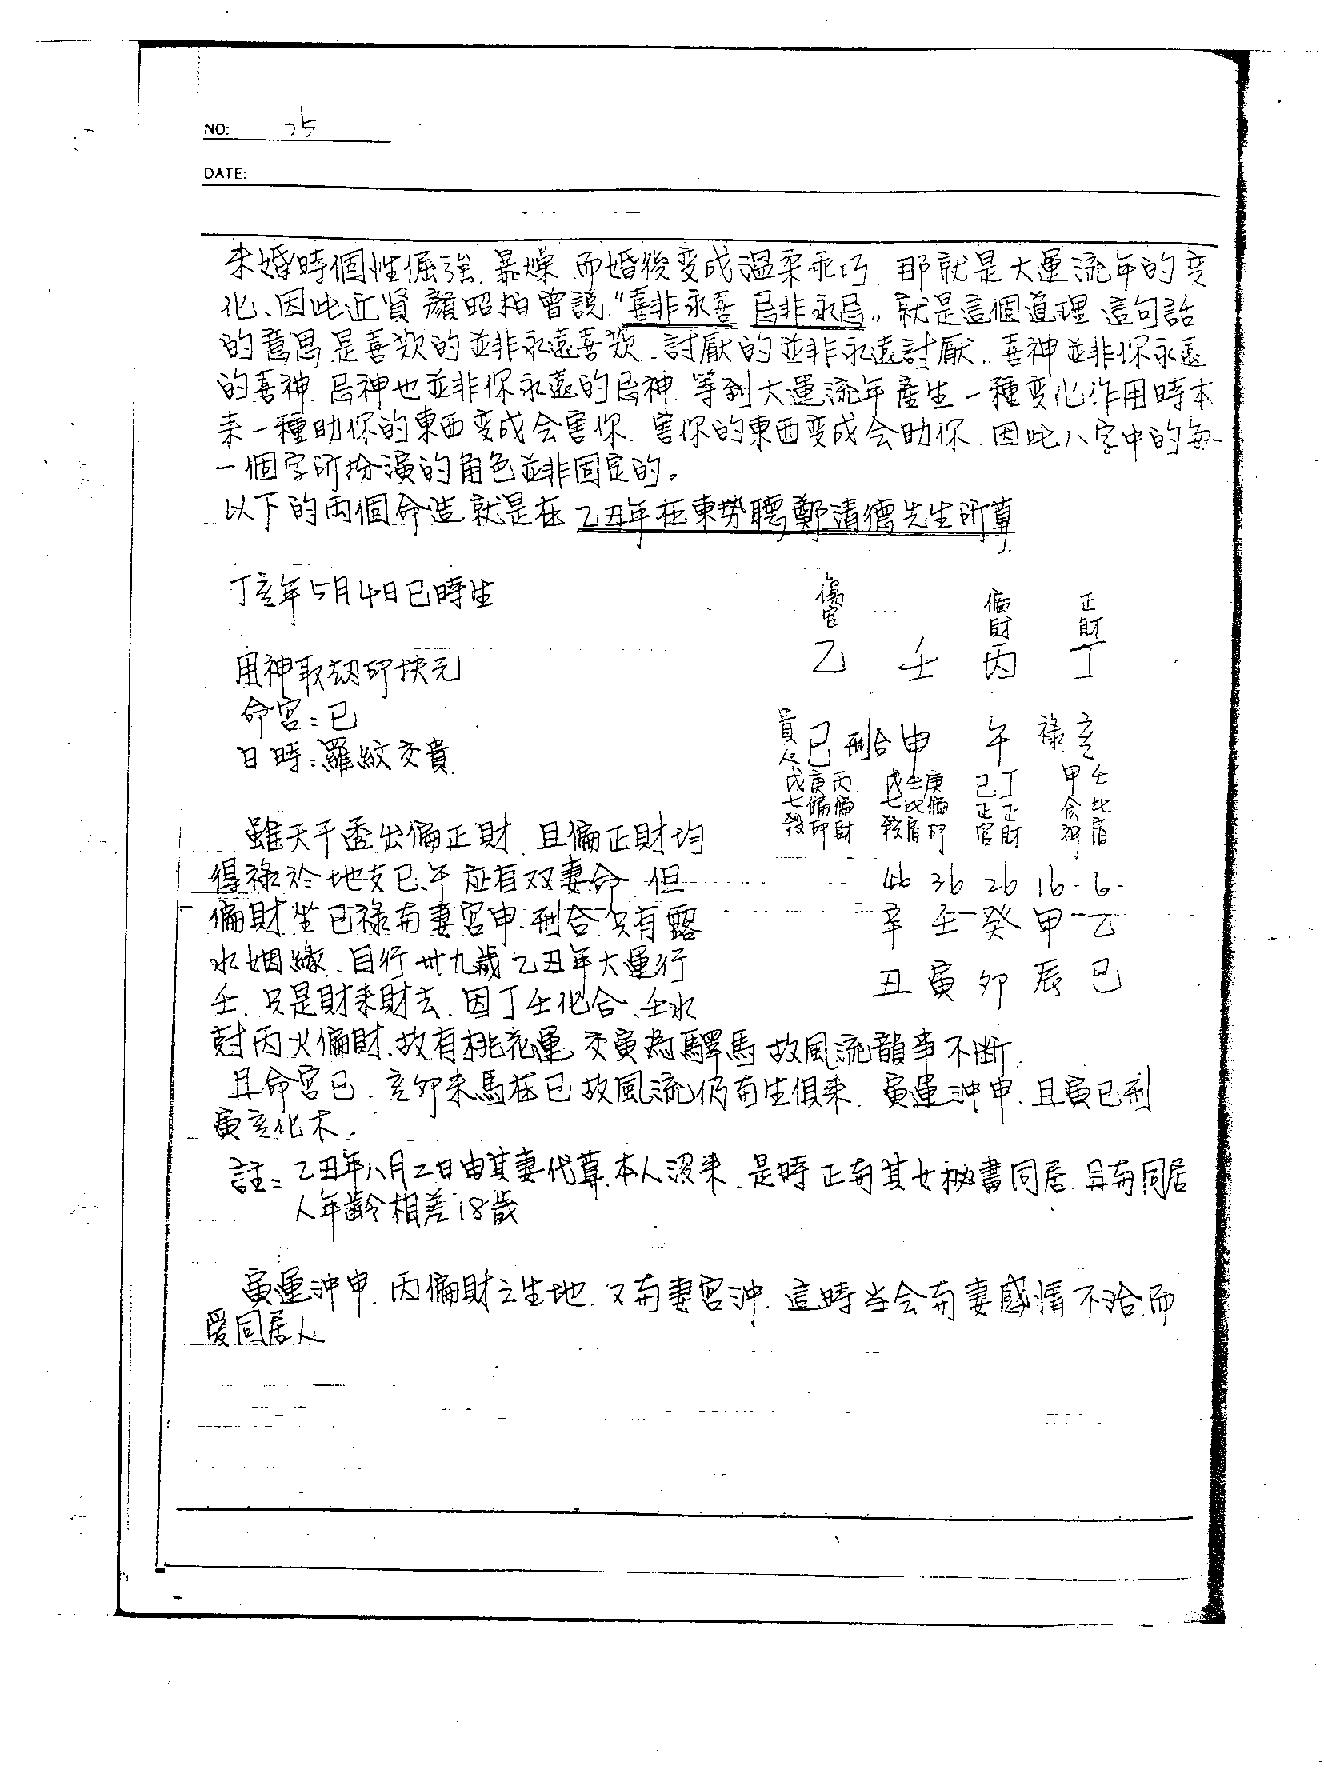 NO: 25
DATE:
未婚時個性倔強、暴燥 而婚後变成溫柔乖巧 那就是大運流年的变
化、因此近賢 顏昭柏曾說"喜非永喜 忌非永忌"就是這個道理 這句話
的意思是喜欢的並非永遠喜欢、討厭的並非永遠討厭、喜神並非你永遠
的喜神 忌神也並非你永遠的忌神 等到大運流年產生一種变化作用時本
來一種助你的東西变成会害你 害你的東西变成会助你 因此八字中的每
一個字所扮演的角色並非固定的。
以下的兩個命造就是在 乙丑年在東势聽鄭清德先生所算
丁亥年5月4日巳時生
傷官 偏財 正財
乙 壬 丙 丁
用神取劫印扶元
命宮:巳
日時:羅紋交貴
貴人 巳 刑合 申 午 祿 亥
戊七殺 庚偏印 丙偏財 戊七殺 壬比肩 庚偏印 己正官 丁正財 甲食神 壬比肩
雖天干透出偏正財、且偏正財均
得祿於地支巳午 应有双妻命 但
偏財坐巳祿而妻宮申刑合 只有露
水姻緣、目行卅九歲 乙丑年大運行
壬、只是財來財去、因丁壬化合、壬水
尅丙火偏財、故有桃花運 交寅為驛馬 故風流韻事不断、
46 36 26 16 6
辛 壬 癸 甲 乙
丑 寅 卯 辰 巳
且命宮巳、亥卯未馬在巳 故風流仍有生俱來、寅運沖申、且寅巳刑
寅亥化木、
註:乙丑年八月二日由其妻代算、本人沒來、是時正有其女秘書同居 且有同居
人年齡相差18歲
寅運沖申、丙偏財之生地、又有妻宮沖、這時当会有妻感情不洽、而
愛同居人